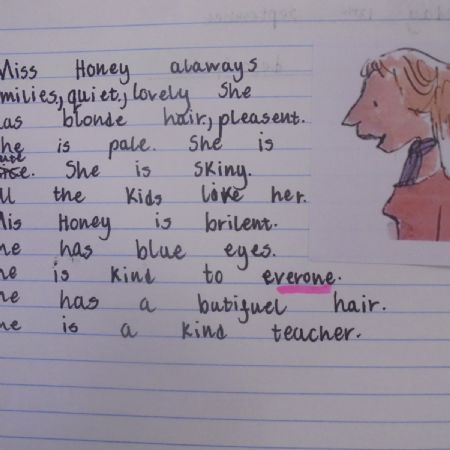 Miss Honey alaways
milies, quiet, lovely She
has blonde hair, pleasent.
he is pale. She is
She is skiny.
ll the kids like her.
Mis Honey is brilent.
he has blue eyes.
he is kind to everone.
he has a butifuel hair.
he is a kind teacher.